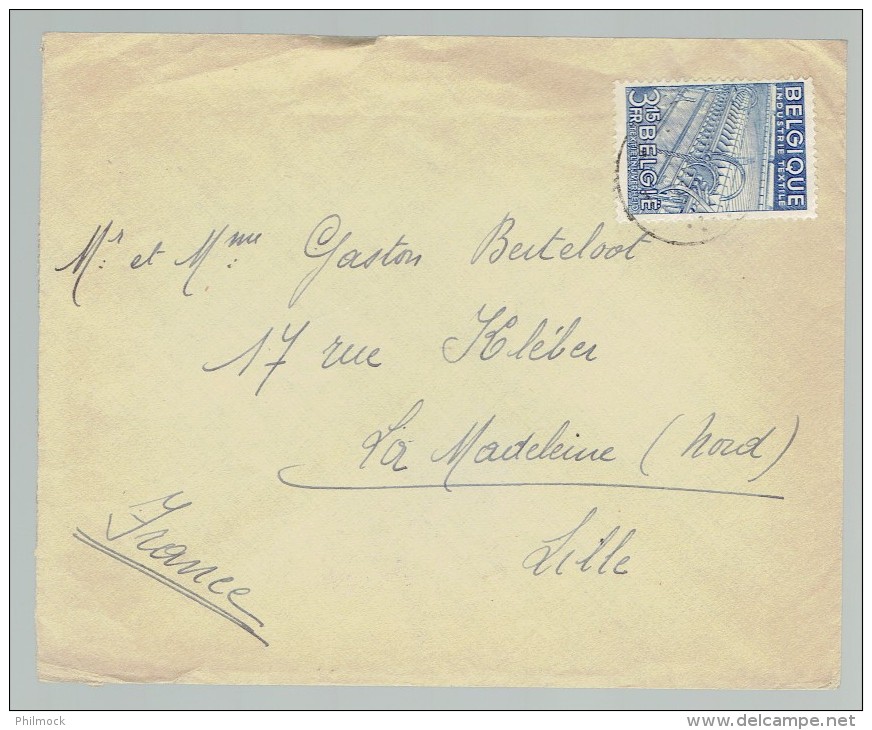 BELGIQUE
INDUSTRIE TEXTILE
3 15 BELGIË
FR TEXTIELNIJVERHEID
Mr et Mme Gaston Berteloot
17 rue Kléber
La Madeleine (Nord)
Lille
France
Philmock
www.delcampe.net